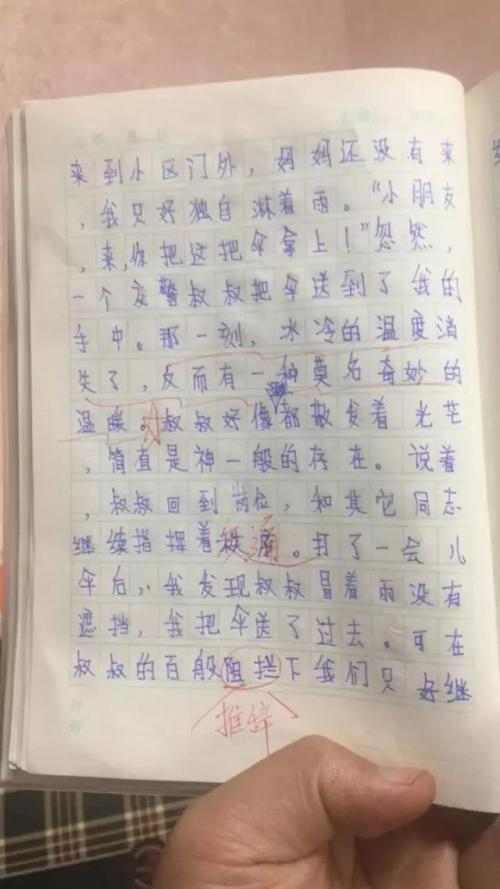 来到小区门外，妈妈还没有来
，我只好独自淋着雨。“小朋友
，来，你把这把伞拿上！”忽然，
一个交警叔叔把伞送到了我的
手中。那一刻，冰冷的温度消
失了，反而有一种莫名奇妙的
温暖。叔叔好像都散发着光芒
，简直是神一般的存在。说着
，叔叔回到岗位，和其它同志
继续指挥着交通。打了一会儿
伞后，我发现叔叔冒着雨没有
遮挡，我把伞送了过去。可在
叔叔的百般阻拦下我们只好继
推辞